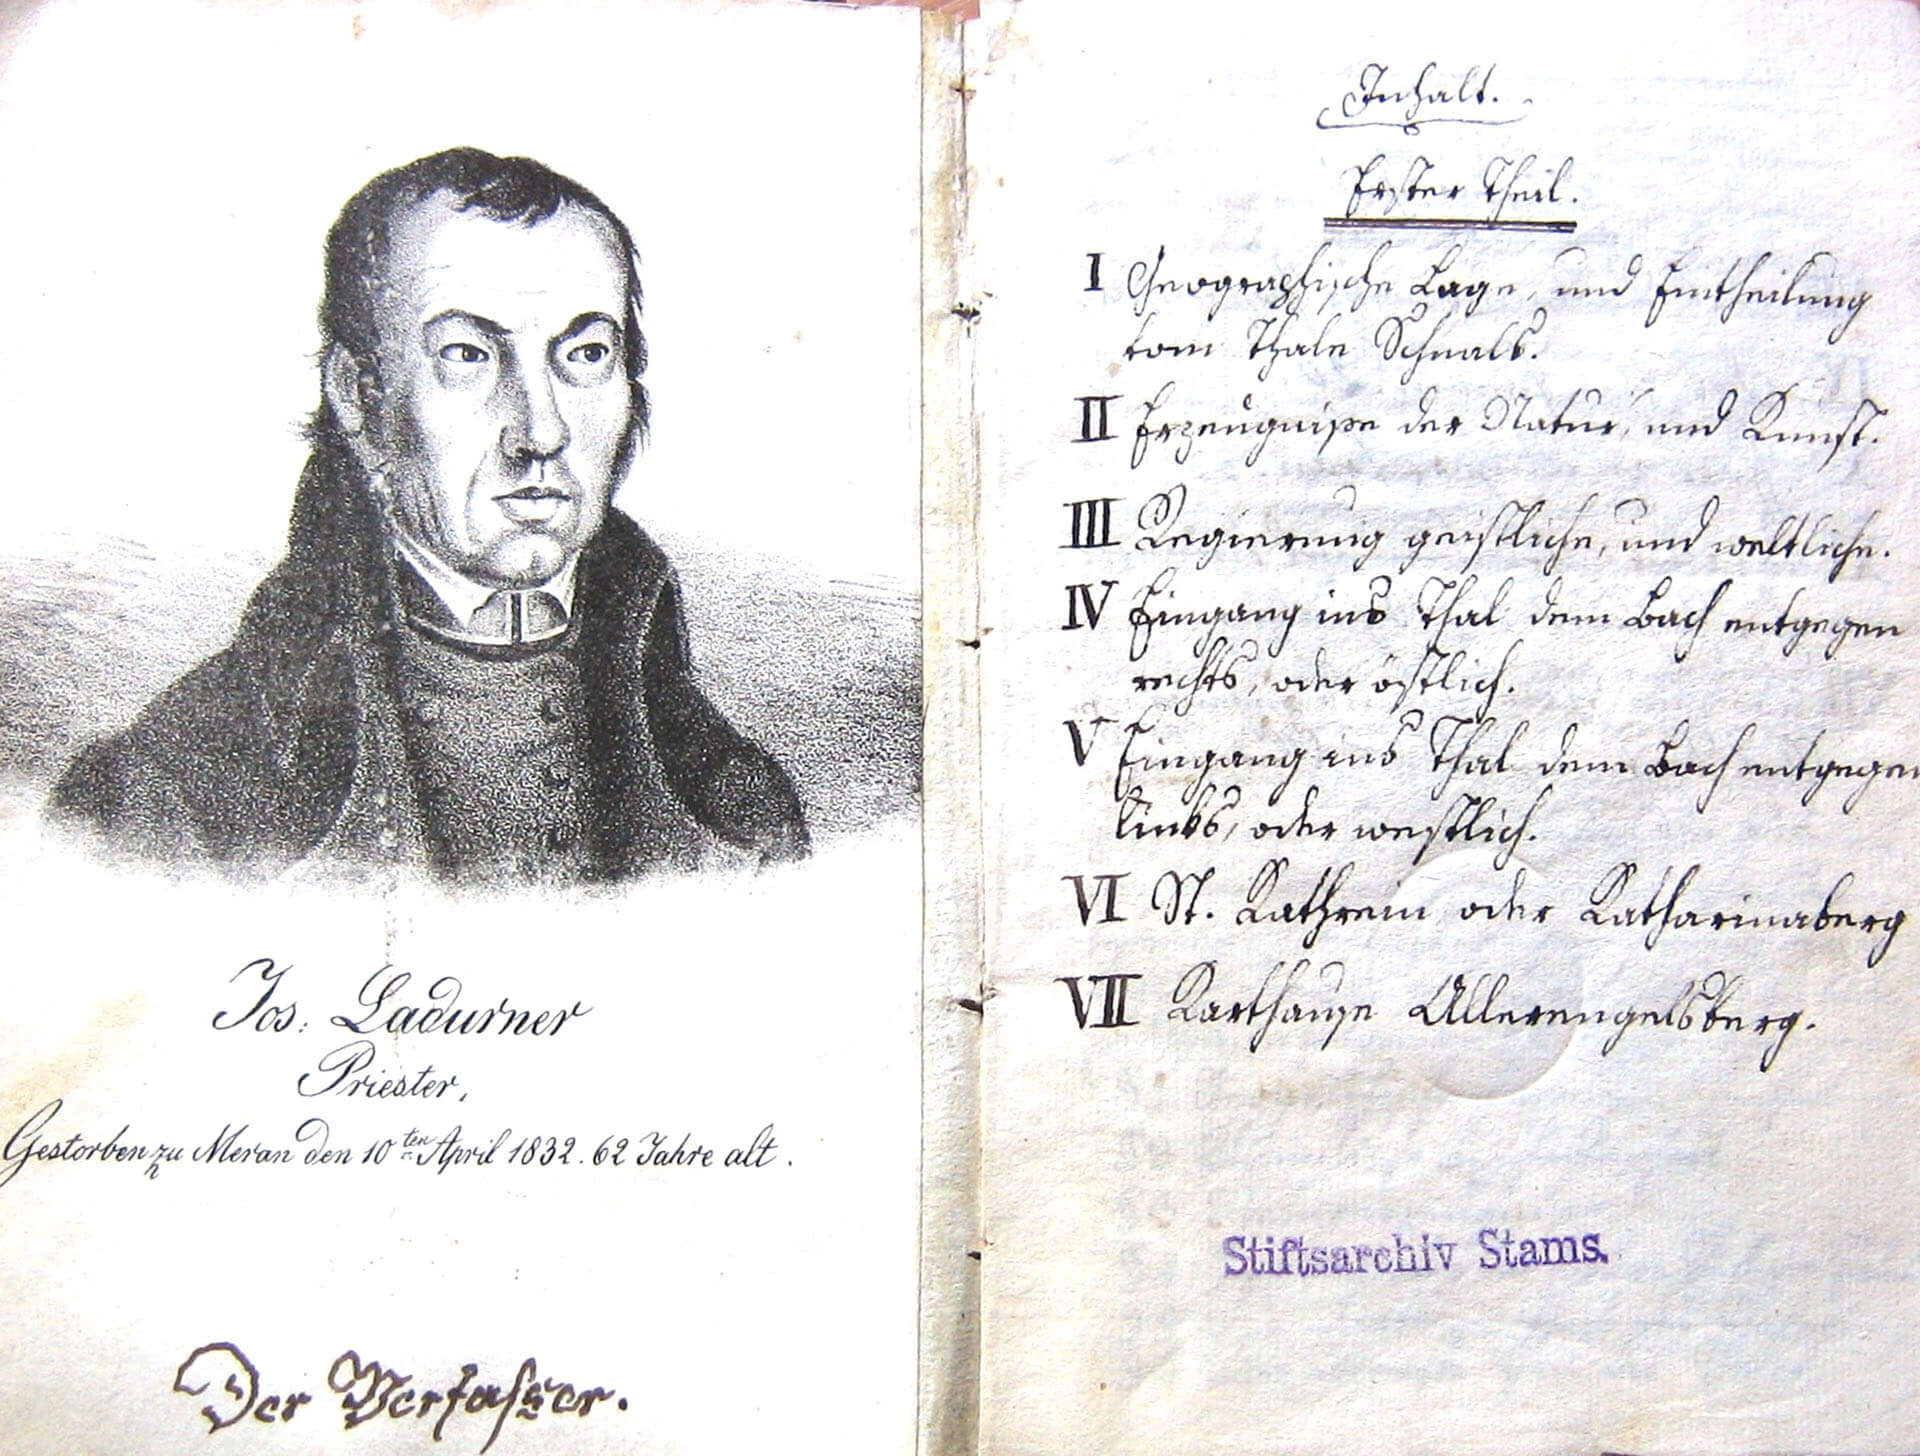 Jos: Ladurner
Priester,
Gestorben zu Meran den 10ten April 1832. 62 Jahre alt.
Der Verfasser.
Inhalt.
Erster Theil.
I Geographische Lage, und Eintheilung
vom Thale Schnals.
II Erzeugniße der Natur, und Kunst.
III Regierung geistliche, und weltliche.
IV Eingang ins Thal dem Bach entgegen
rechts, oder östlich.
V Eingang ins Thal dem Bach entgegen
links, oder westlich.
VI St. Kathrein oder Katharinaberg
VII Karthause Allerengelsberg.
Stiftsarchiv Stams.